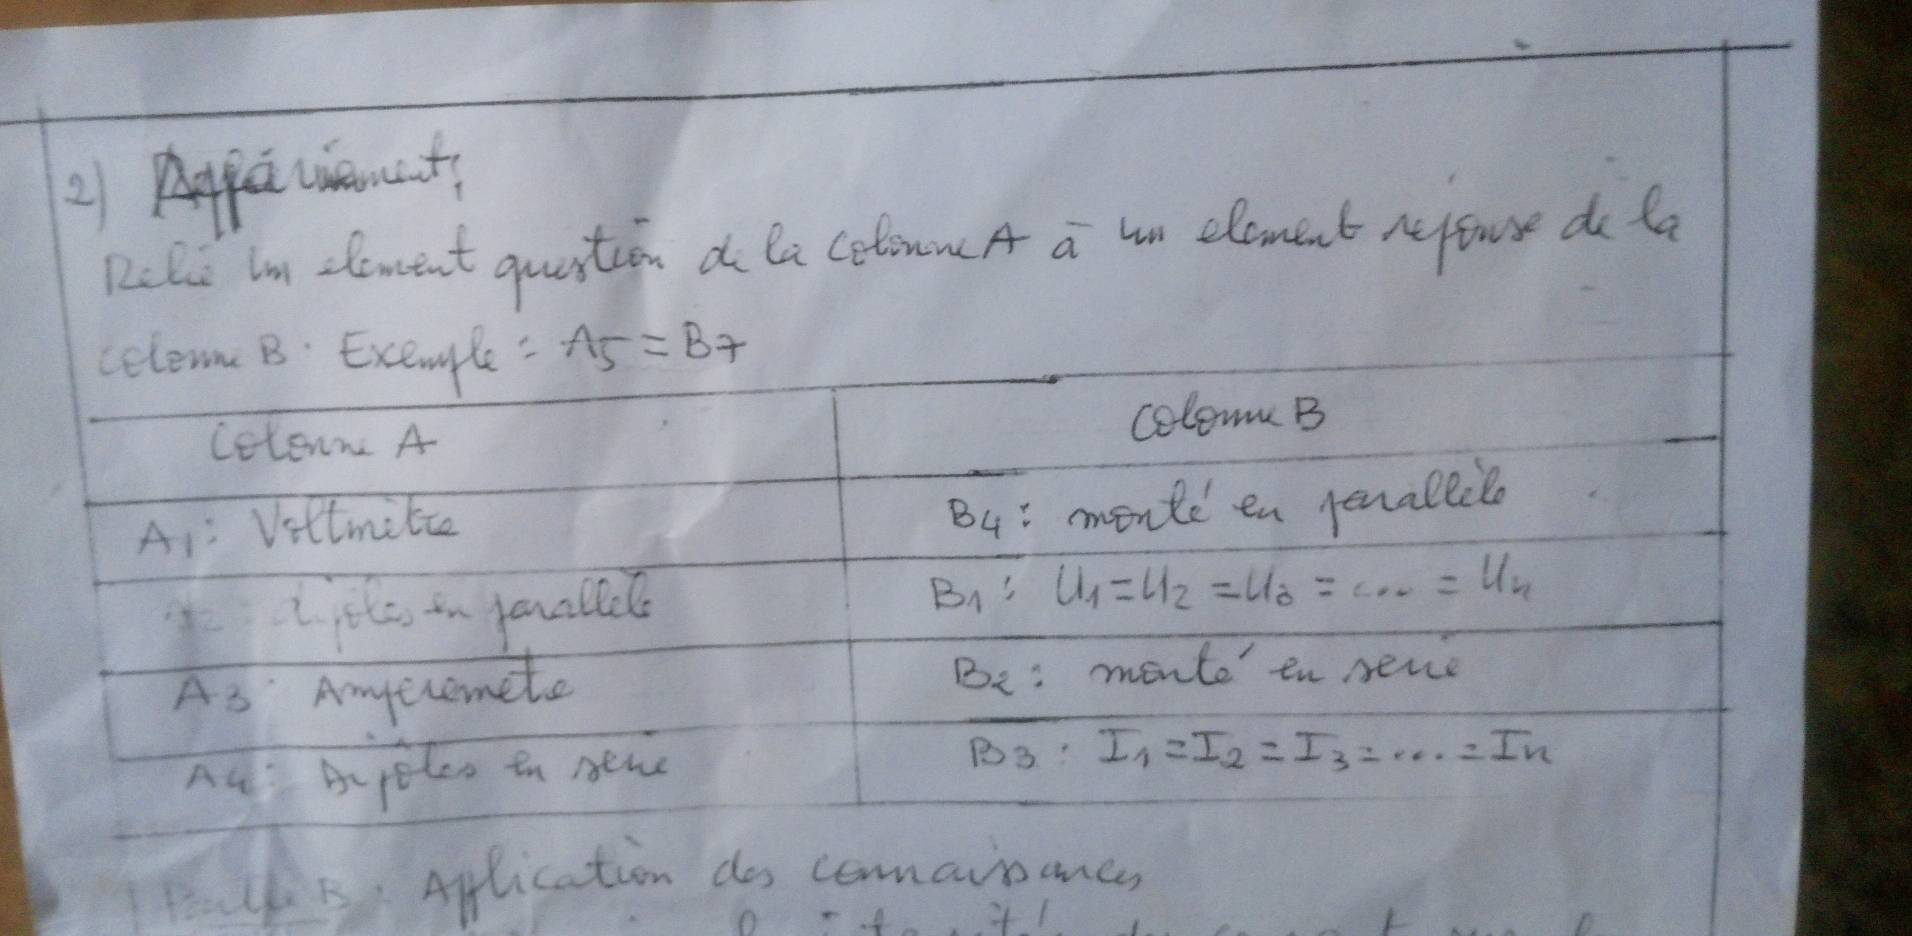 2) Appariement:
Relié un element question de la colonne A à un element reponse de la
colonne B. Exemple : A5 = B7
Colonne A
Colonne B
A1: Voltmètre
B4: monté en parallèle
A2: dipôles en parallèle
B1: U1=U2=U3=....=Un
A3: Amperemetre
B2: monté en serie
A4: Dipôles en serie
B3: I1=I2=I3=....=In
Partie B: Application des connaissances